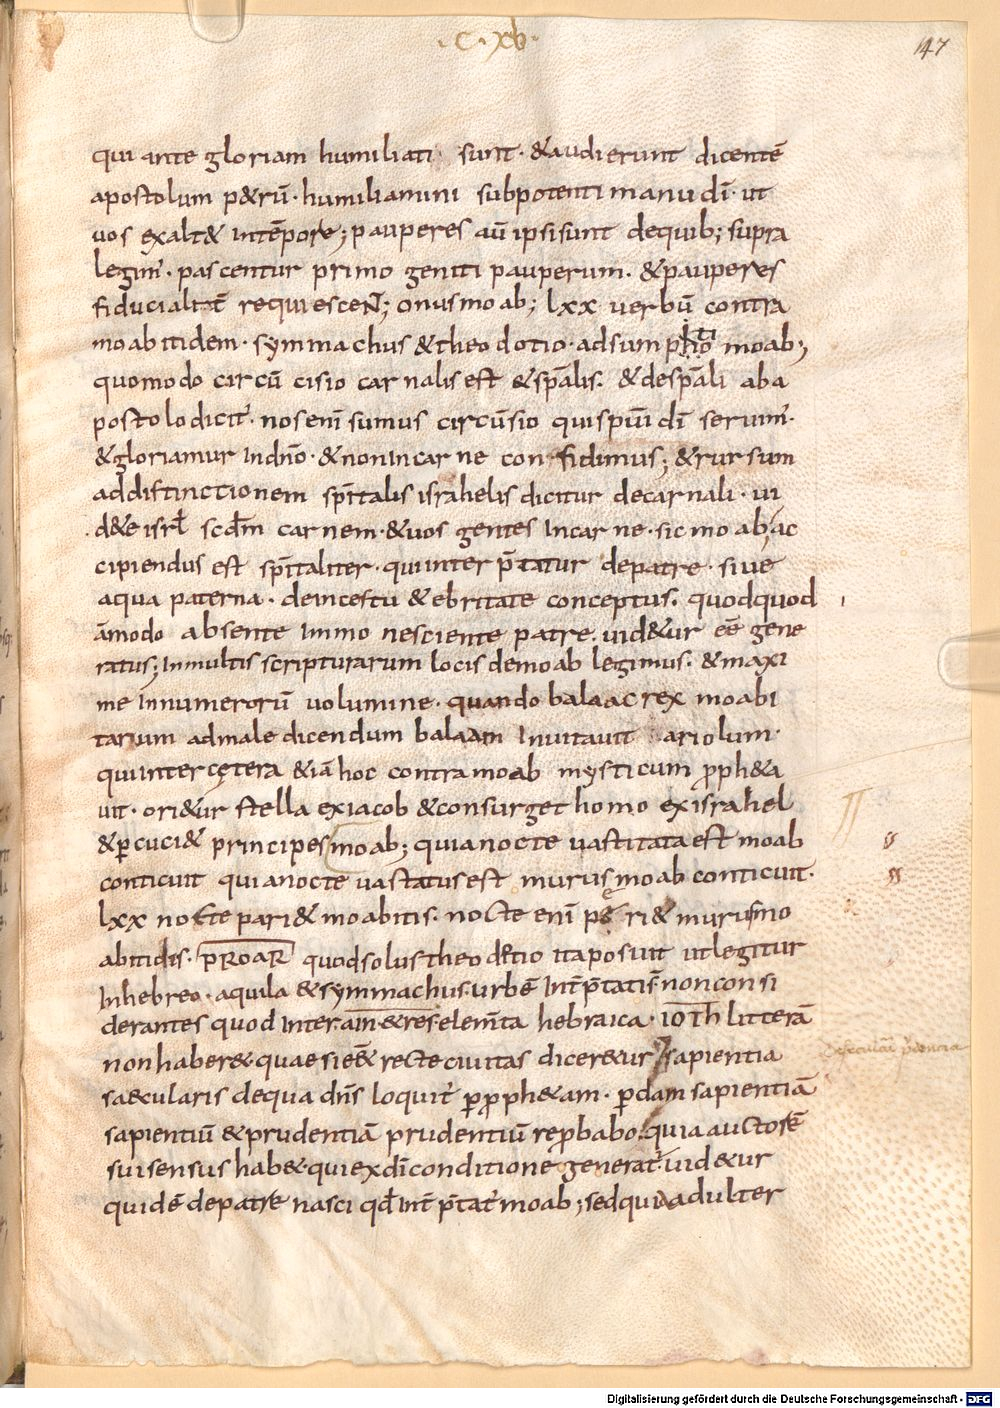 · C · XV ·
147
qui ante gloriam humiliati · sunt · &audierunt dicentē
apostolum p&rū · humiliamini subpotenti manu dī · ut
uos exalt& intēpore ; pauperes aū ipsisunt dequib; supra
legim̄ · pascentur primo geniti pauperum · &pauperes
fiducialit̄ requiesceNT; onusmoab; lxx uerbū contra
moabitidem · symmachus &theodotio · adsum moab;
quomodo circū cisio carnalis est &spalis · &despali aba
postolo dicit̄ · nos enī sumus circūsio qui spūi dī serūim̄ ·
&gloriamur Indnō · &nonIncarne confidimus; &rursum
addistinctionem spitalis israhelis dicitur decarnali · ui
d&e isrl scdm carnem · &uos gentes Incarne · sic moab; ac
cipiendus est spitaliter · qui inter p̄tatur depatre · siue
aqua paterna · deincestu &ebritate conceptus · quodquod
āmodo absente Immo nesciente patre · uid&ur eē gene
ratus; Inmultis scripturarum locis demoab legimus · &maxi
me Innumerorū uolumine · quando balaac rex moabi
tarum admaledicendum balaam Inuitauit ariolum ·
quiinter cętera &iā hoc contramoab mysticum proph&a
uit · ori&ur stella exiacob &consurget homo exisrahel
&pcuci& principes moab; quianocte uastitata est moab
conticuit quianocte uastatus est murus moab conticuit ·
lxx nocte pari& moabitis · nocte enī ri& murus mo
abitidis · PROAR quodsolus theodotio itaposuit utlegitur
Inhebreo · aquila &symmachus · urbē Int̄p̄tatis̄ · nonconsi
derantes quod Inter · aīn · &res · elemta hebraica · IOTH litterā
nonhaber& quae si eē& recte ciuitas dicer&ur sapientia
saecularis dequa dn̄s loquit̄ p proph&am · pdam sapientiā
sapientiū &prudentiā prudentiū reprobabo · quia auctorē
sui sensus hab& · qui exdī conditione generat̄ · uid&ur
quidē depatre nasci qd Int̄p̄tat̄ moab; sedquia adulter
Digitalisierung gefördert durch die Deutsche Forschungsgemeinschaft - DFG